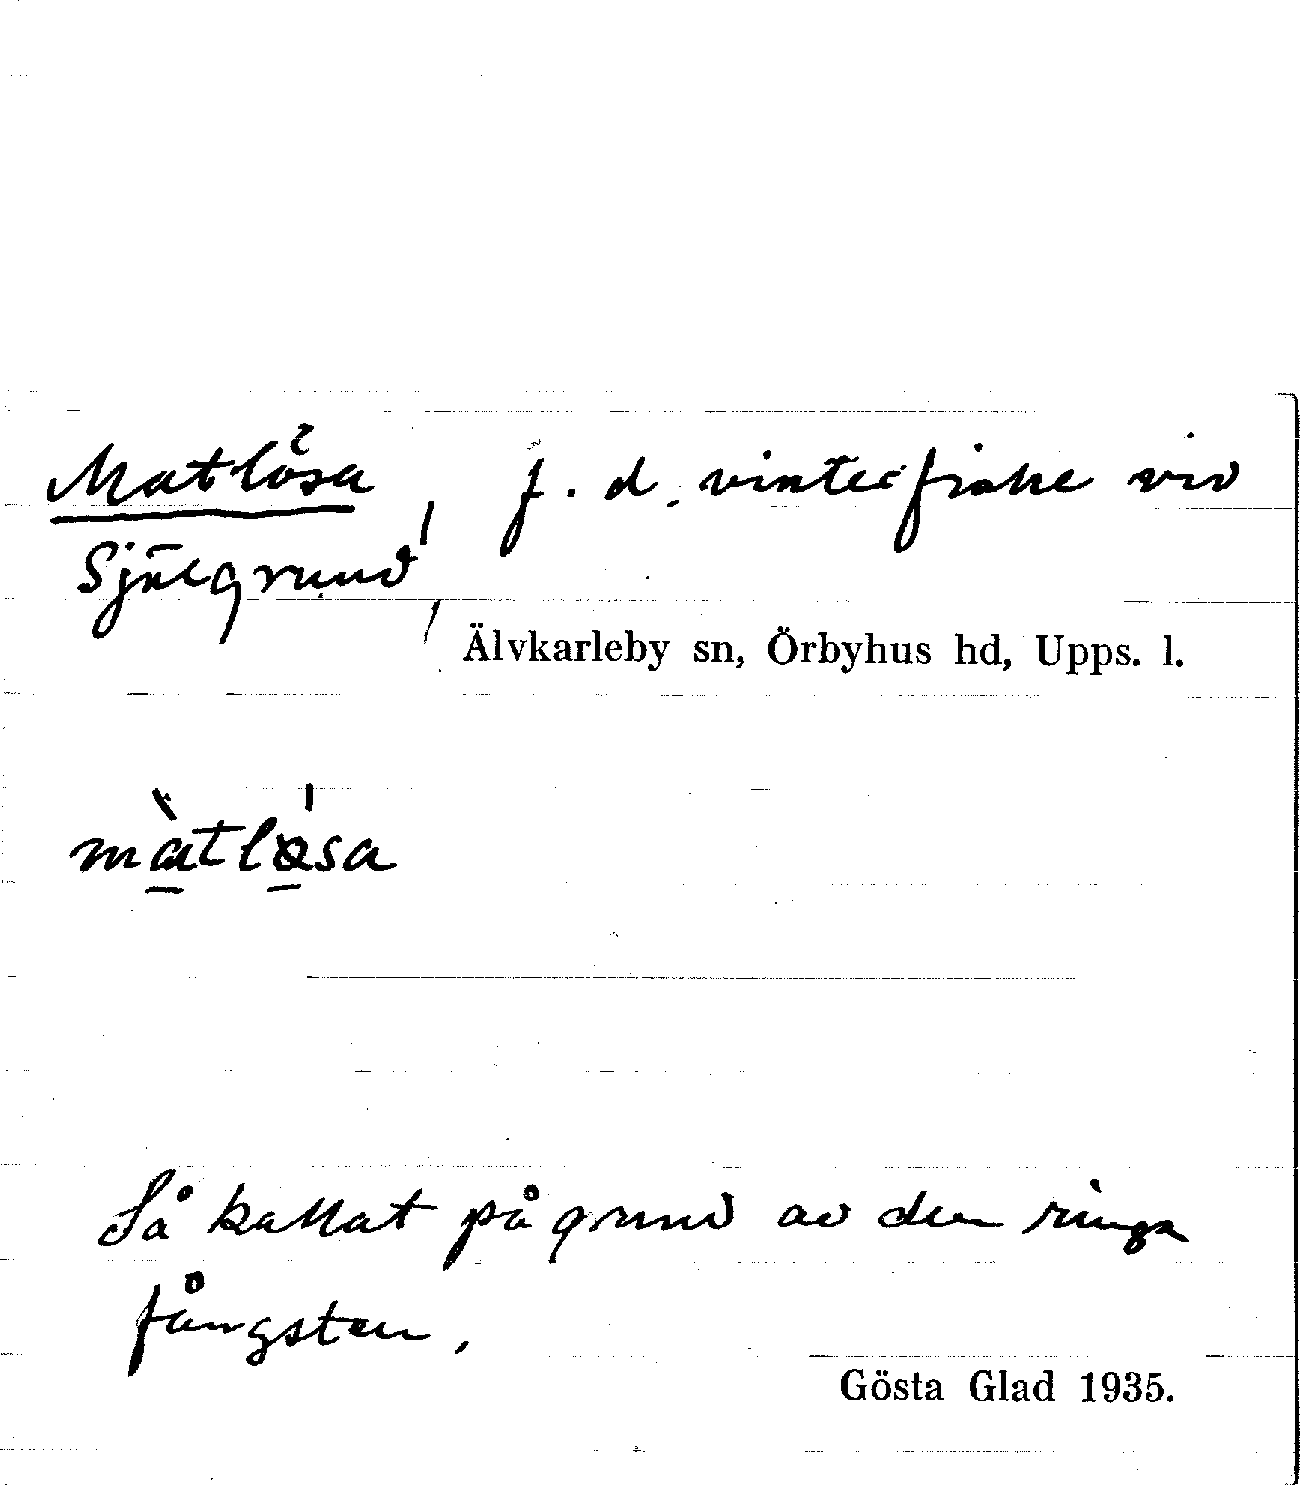 Matlösa, f. d. vinterfiske vid
Själgrund,
Älvkarleby sn, Örbyhus hd, Upps. l.
màtlǿsa
Så kallat på grund av den ringa
fångsten.
Gösta Glad 1935.